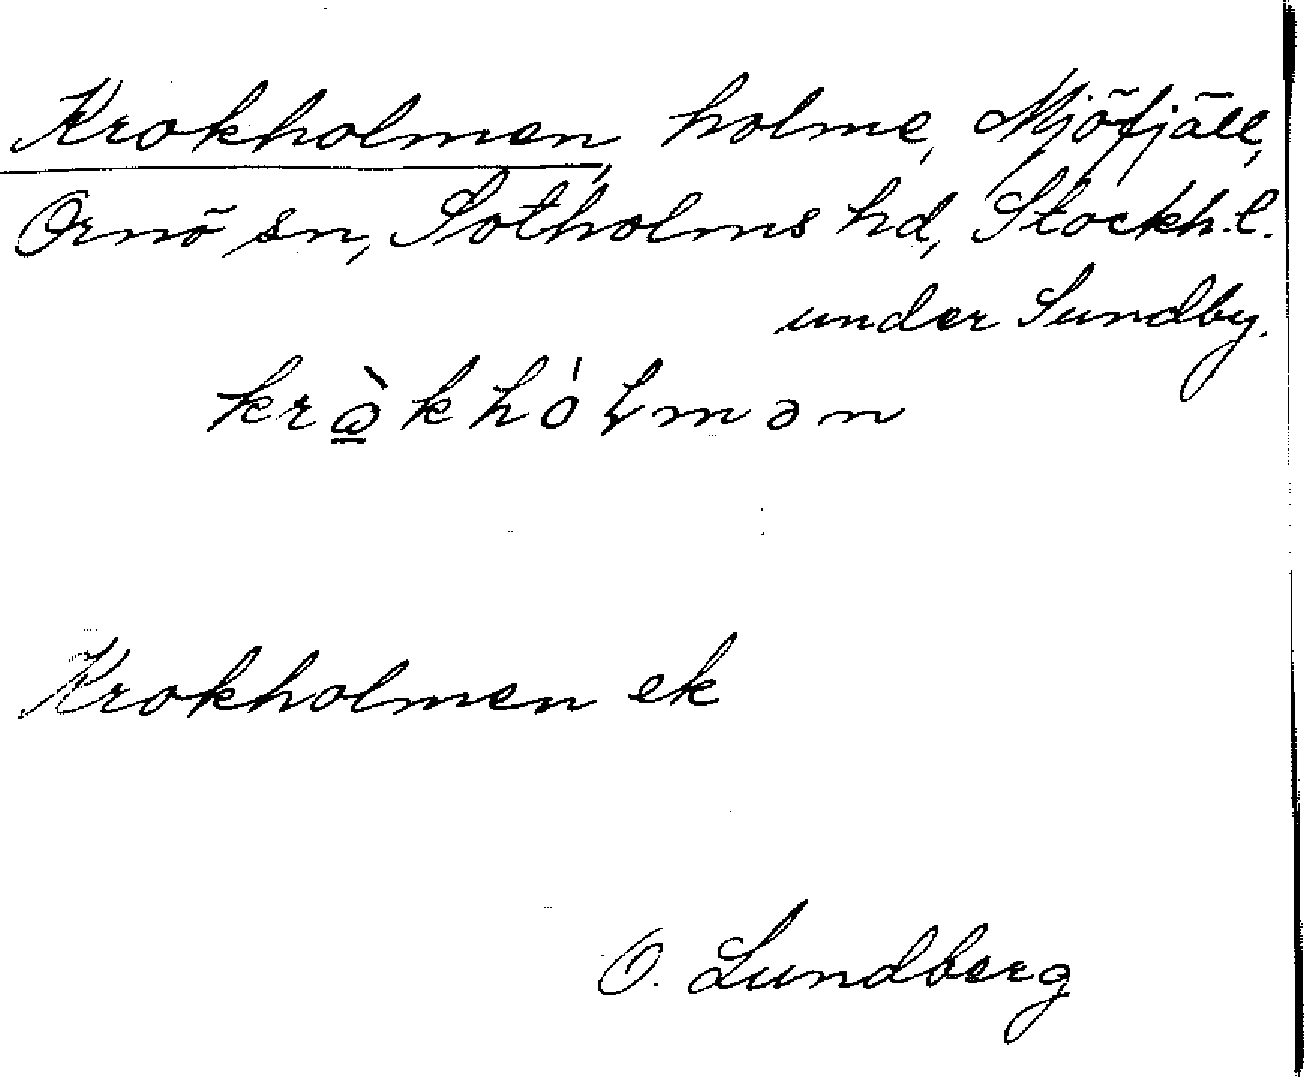 Krokholmen, holme, Mjöfjäll,
Ornö sn, Sotholms hd, Stockh. l.
under Sundby.
krὼkhólmən
Krokholmen ek
O. Lundberg